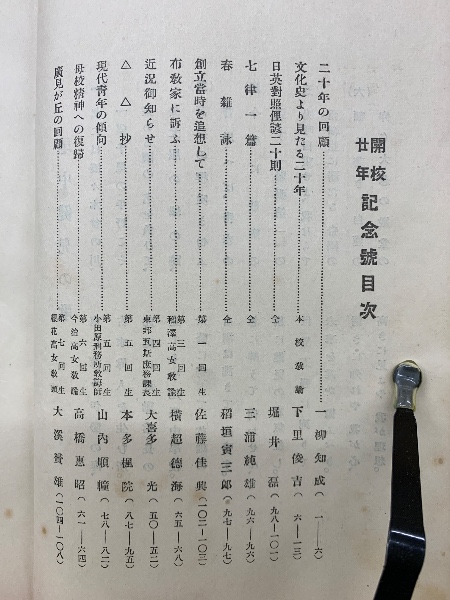 開校廿年記念號目次
二十年の回顧……一柳知成(一—六)
文化史より見たる二十年……本校敎諭 下里俊吉(六—一三)
日英對照俚諺二十則……仝 堀井磊(九八—一〇一)
七律一篇……仝 三浦純雄(九六—九六)
春雜詠……仝 稻垣寅三郎(九七—九七)
創立當時を追想して……第一回生 佐藤佳典(一〇二—一〇三)
布敎家に訴ふ……第三回生 稻澤高女敎諭 橫超德海(六五—六八)
近況御知らせ……第四回生 東邦瓦斯庶務課長 大喜多光(五〇—五二)
△△抄……第五回生 本多俚院(八七—九五)
現代靑年の傾向……第五回生 小田原刑務所敎誨師 山內順糧(七八—八二)
母校精神への復歸……第六回生 今治高女敎諭 高橋惠昭(六一—六四)
廣見が丘の回顧……第七回生 櫻花高女敎頭 大溪贊雄(一〇四—一〇八)